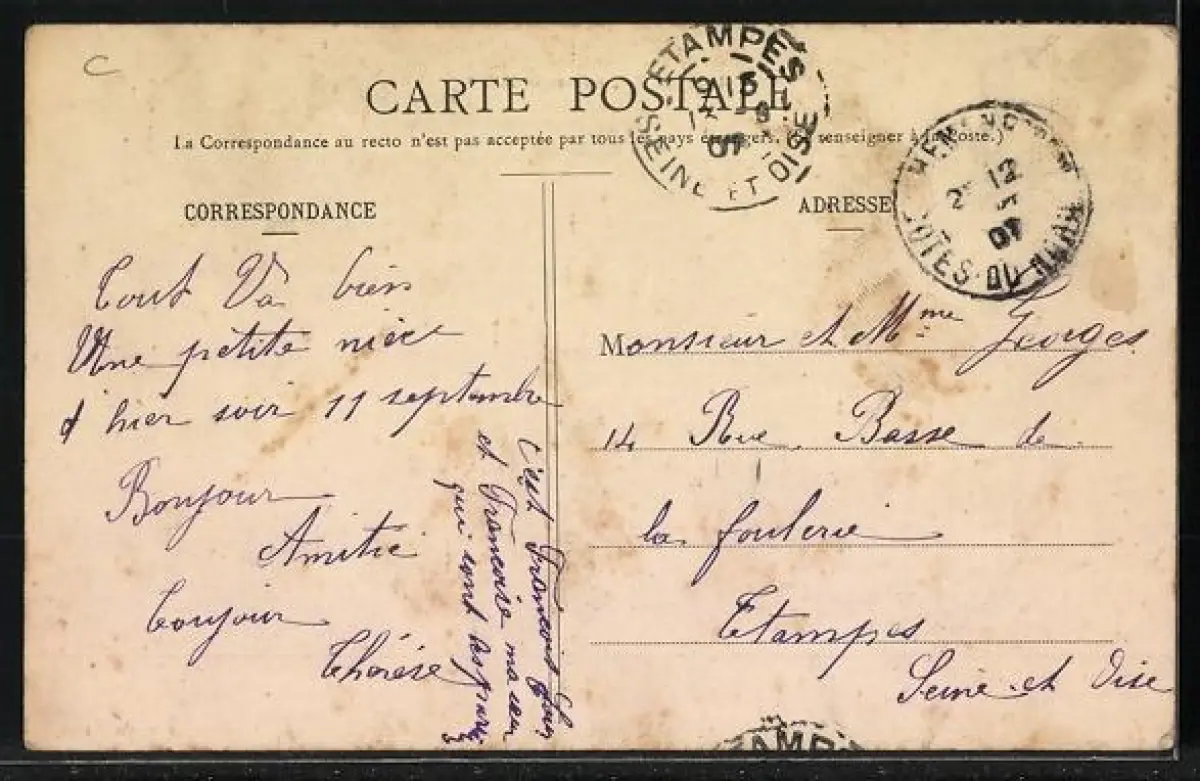 C
CARTE POSTALE
La Correspondance au recto n'est pas acceptée par tous les pays étrangers. (Se renseigner à la Poste.)
ETAMPES
15 -9
07
SEINE ET OISE
12
07
COTES-DU-NORD
CORRESPONDANCE
Tout Va bien
Une petite nièce
d'hier soir 11 septembre
Bonjour
Amitié
Toujour
Thérèse
c'est François
et Francoise ma sœur
qui sont
ADRESSE
Monsieur et Mme Georges
14 Rue Basse de
la foulerie
Etampes
Seine et Oise
ETAMP